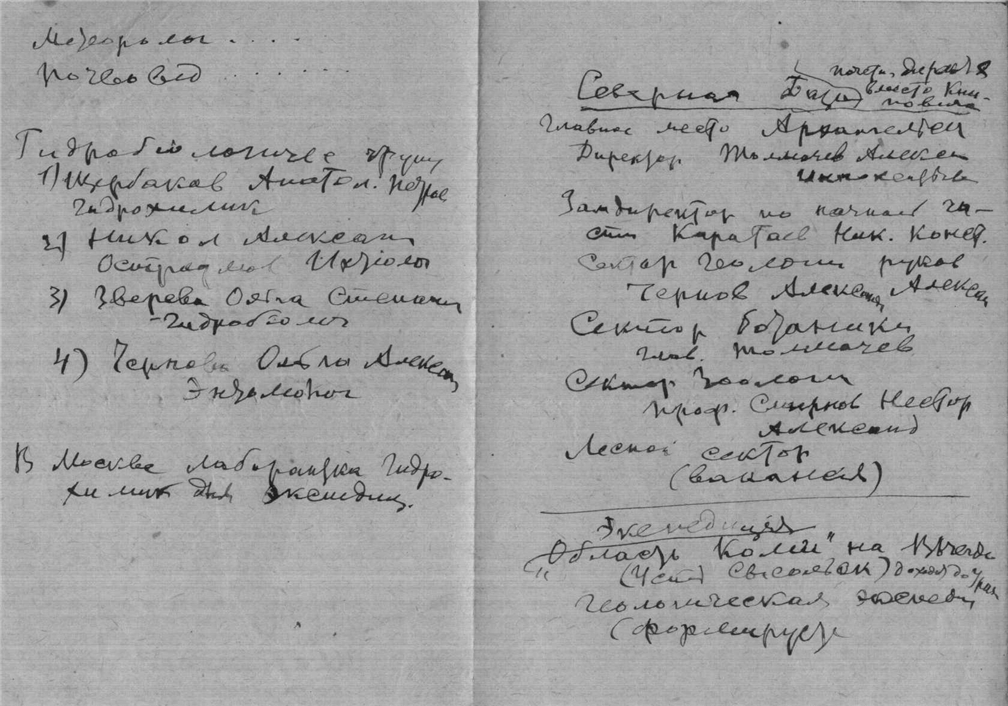 Метеоролог . . . .
почвовед . . . . . . .
Гидробиологичес групу
1) Щербаков Анатол. Петров
гидрохимик
2) Никол Алексан
Остроумов Ихтиолог
3) Зверева Ольга Степан
- гидробиолог
4) Чернова Ольга Алексан
Энтомолог
В Москве лаборантка гидро-
химик для экспедиц.
почетн. директ
Северная База вместо Кни-
повича
Главное место Архангельск
Директор Толмачев Алексе
Иннокентьев
Замдиректор по научной ча-
сти Каратаев Ник. Конст.
Сектор Геологии руков
Чернов Алексан Алексан
Сектор ботаники
глав. Толмачев
Сектор Зоологии
проф. Смирнов Нестор
Александ
Лесной сектор
(вакансия)
Экспедиция
"Область Коми" на Вычегде
(Усть Сысольск) доходят до Урал
Геологическая экспеди
(формируетс